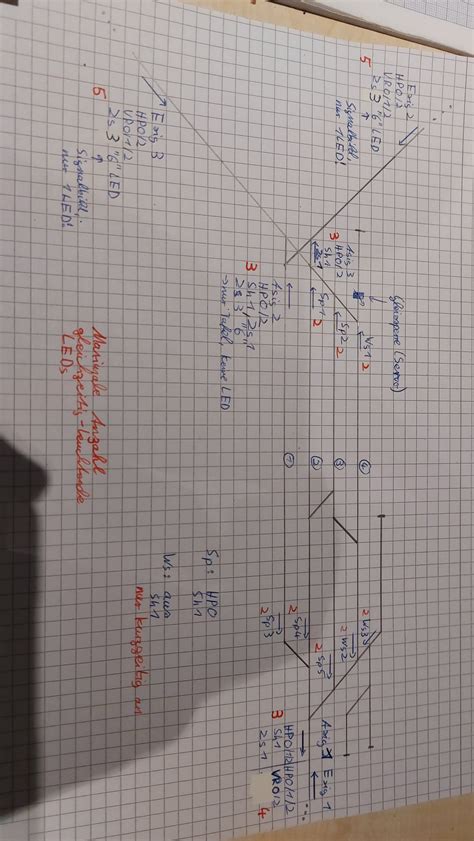 Einig 2
HP0/2
VR0/1/2
2s3 "6" LED
5
Signalbild,
nur 1 LED!
Einig 3
HP0/2
VR0/1/2
2s3 "6" LED
5
Signalbild,
nur 1 LED!
Asig 3
HP0/2
Sh1
3
Asig 2
HP0/2
Sh1, Zs1
2s 3 6
-> nur Tafel, keine LED
3
Sp1 2
Sp2 2
Ws1 2
Gleissperre (Servo)
1
2
3
4
Maximale Anzahl
gleichzeitig-leuchtende
LEDs
Sp: HP0
Sh1
Ws: aus
Sh1
nur kurzzeitig an
2 Sp3
2 Sp4
2 Sp5
2 Ws2
2 Ws3
Asig 1
HP0/1/2
Sh1
2s1
3
Esig 1
HP0/1/2
VR0/2
4